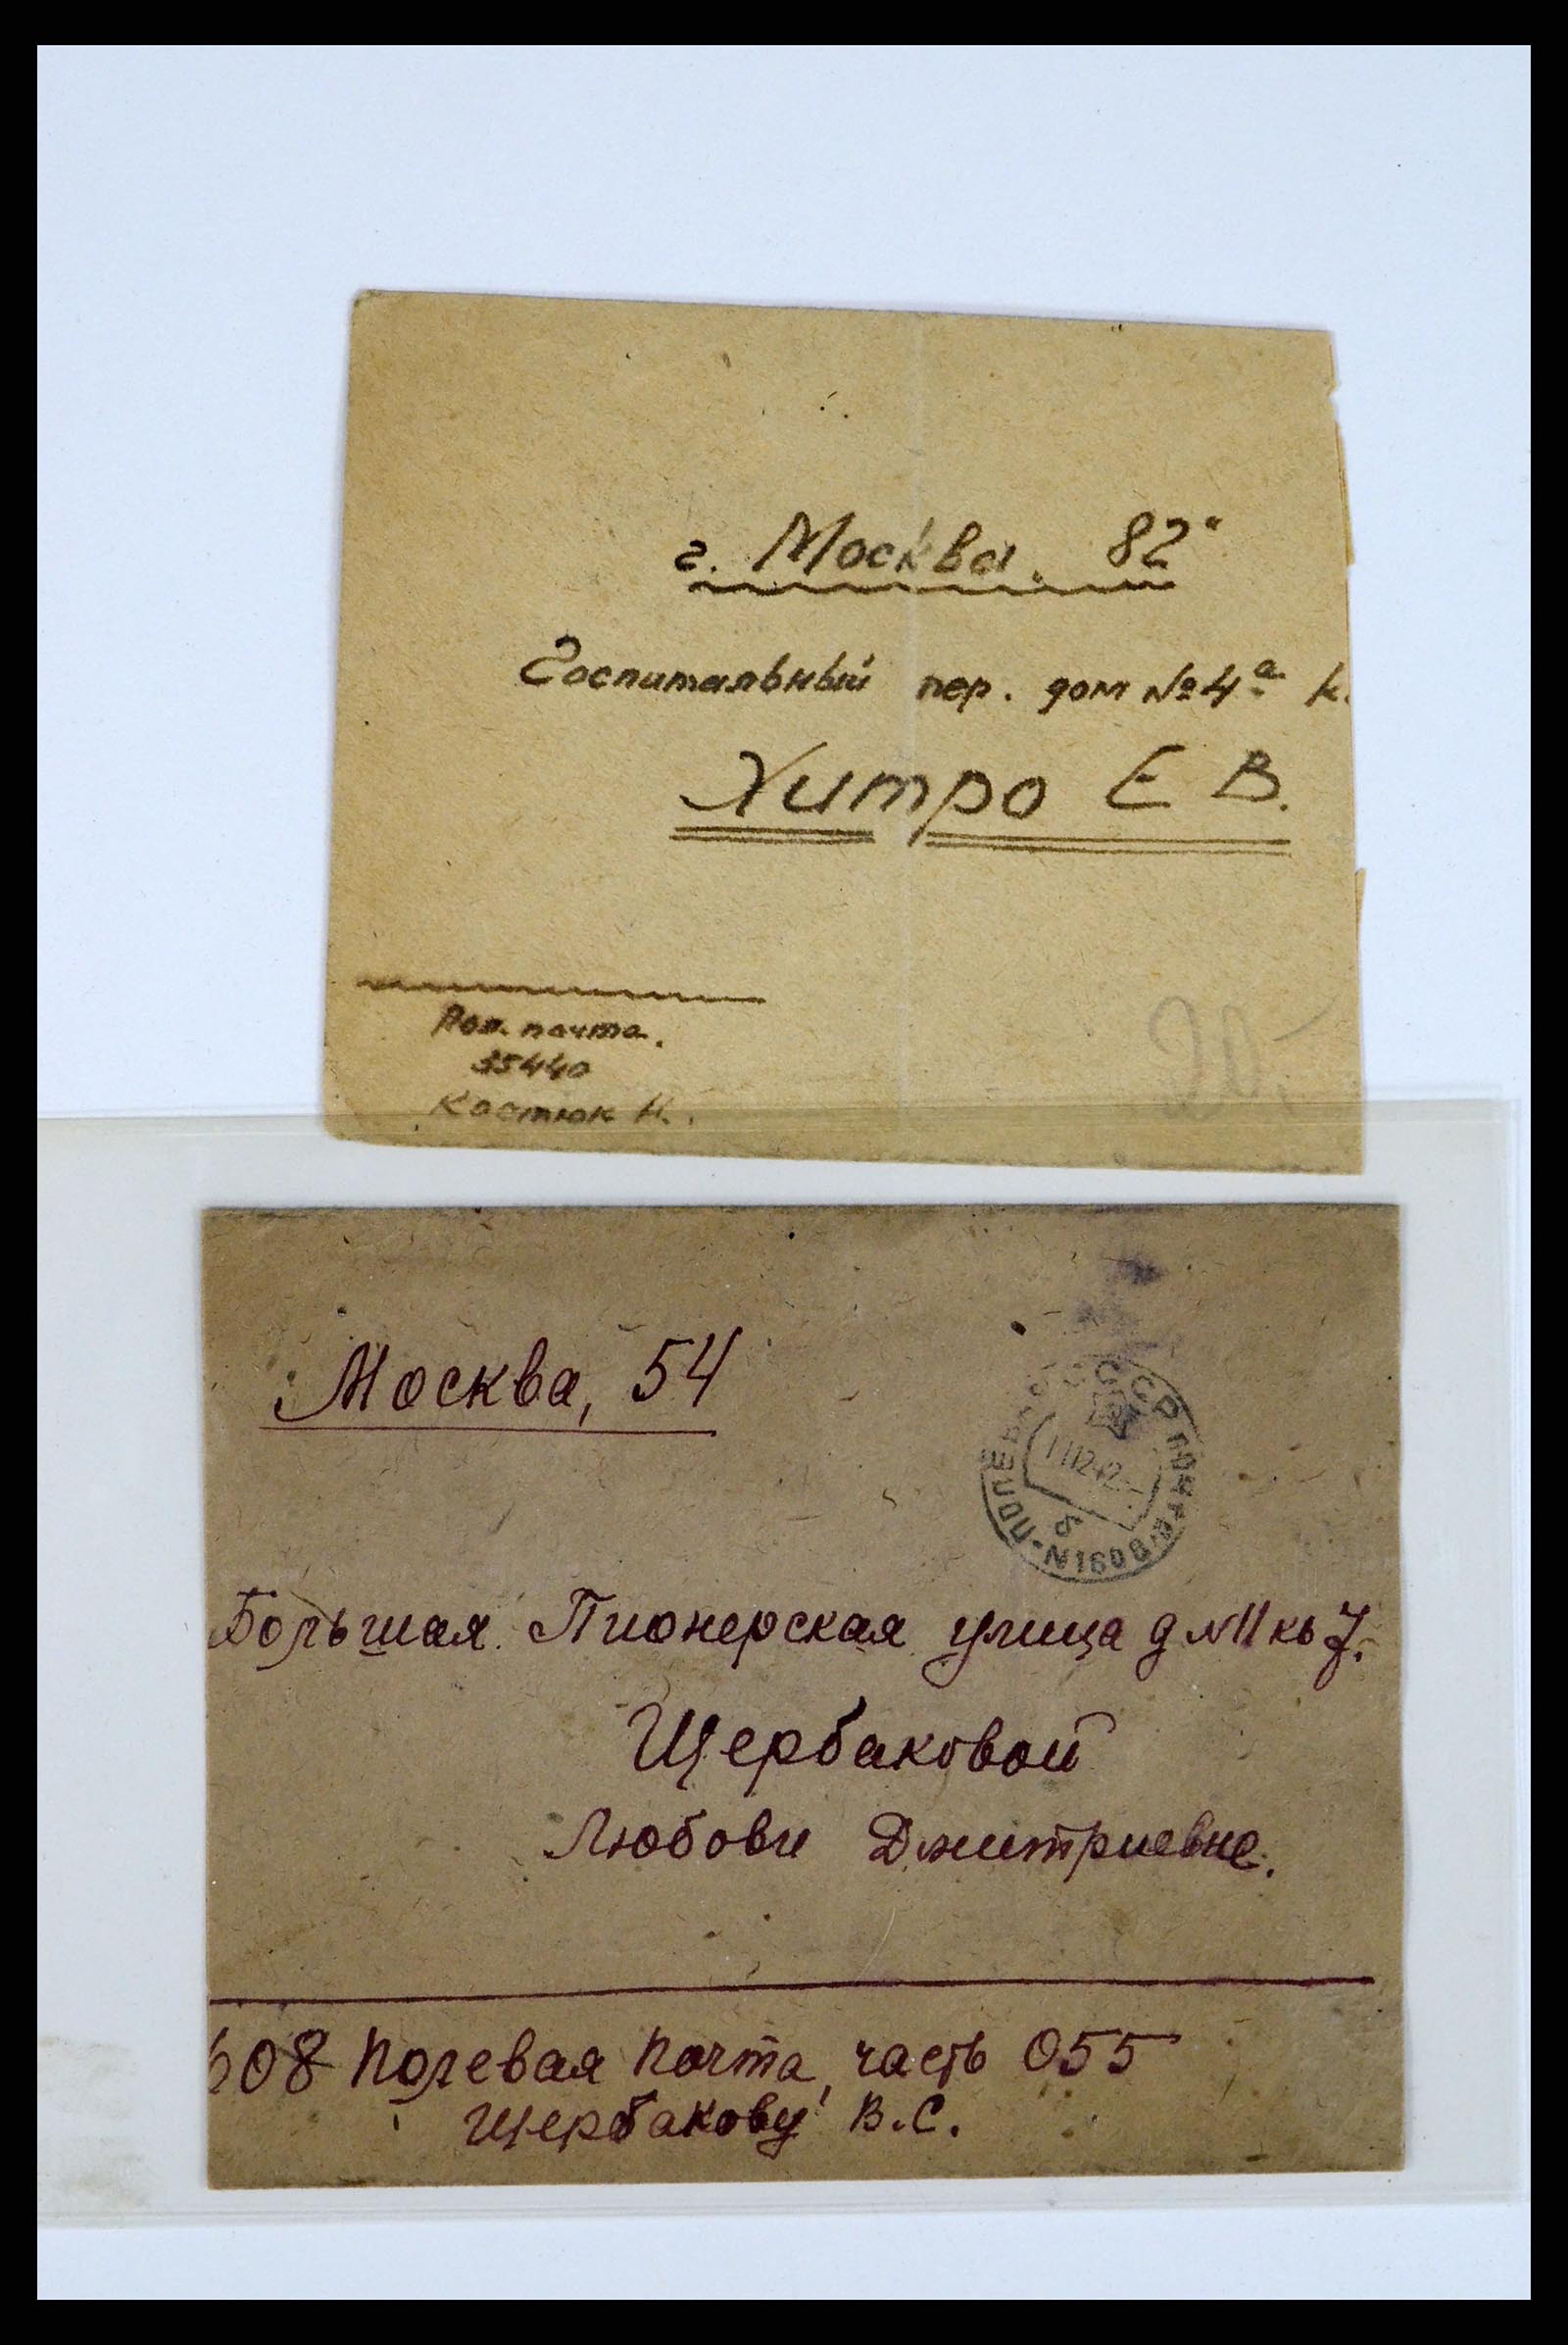 г. Москва. 82
Госпитальный пер. дом №4а к.
Хитро Е В.
Пол. почта.
35440
Костюк Н.
Москва, 54
СССР
ПОЛЕВАЯ ПОЧТА
12 42
б
N1608
Большая Пионерская улица д N11 кв 7.
Щербаковой
Любови Дмитриевне.
608 Полевая почта, часть 055
Щербакову В.С.